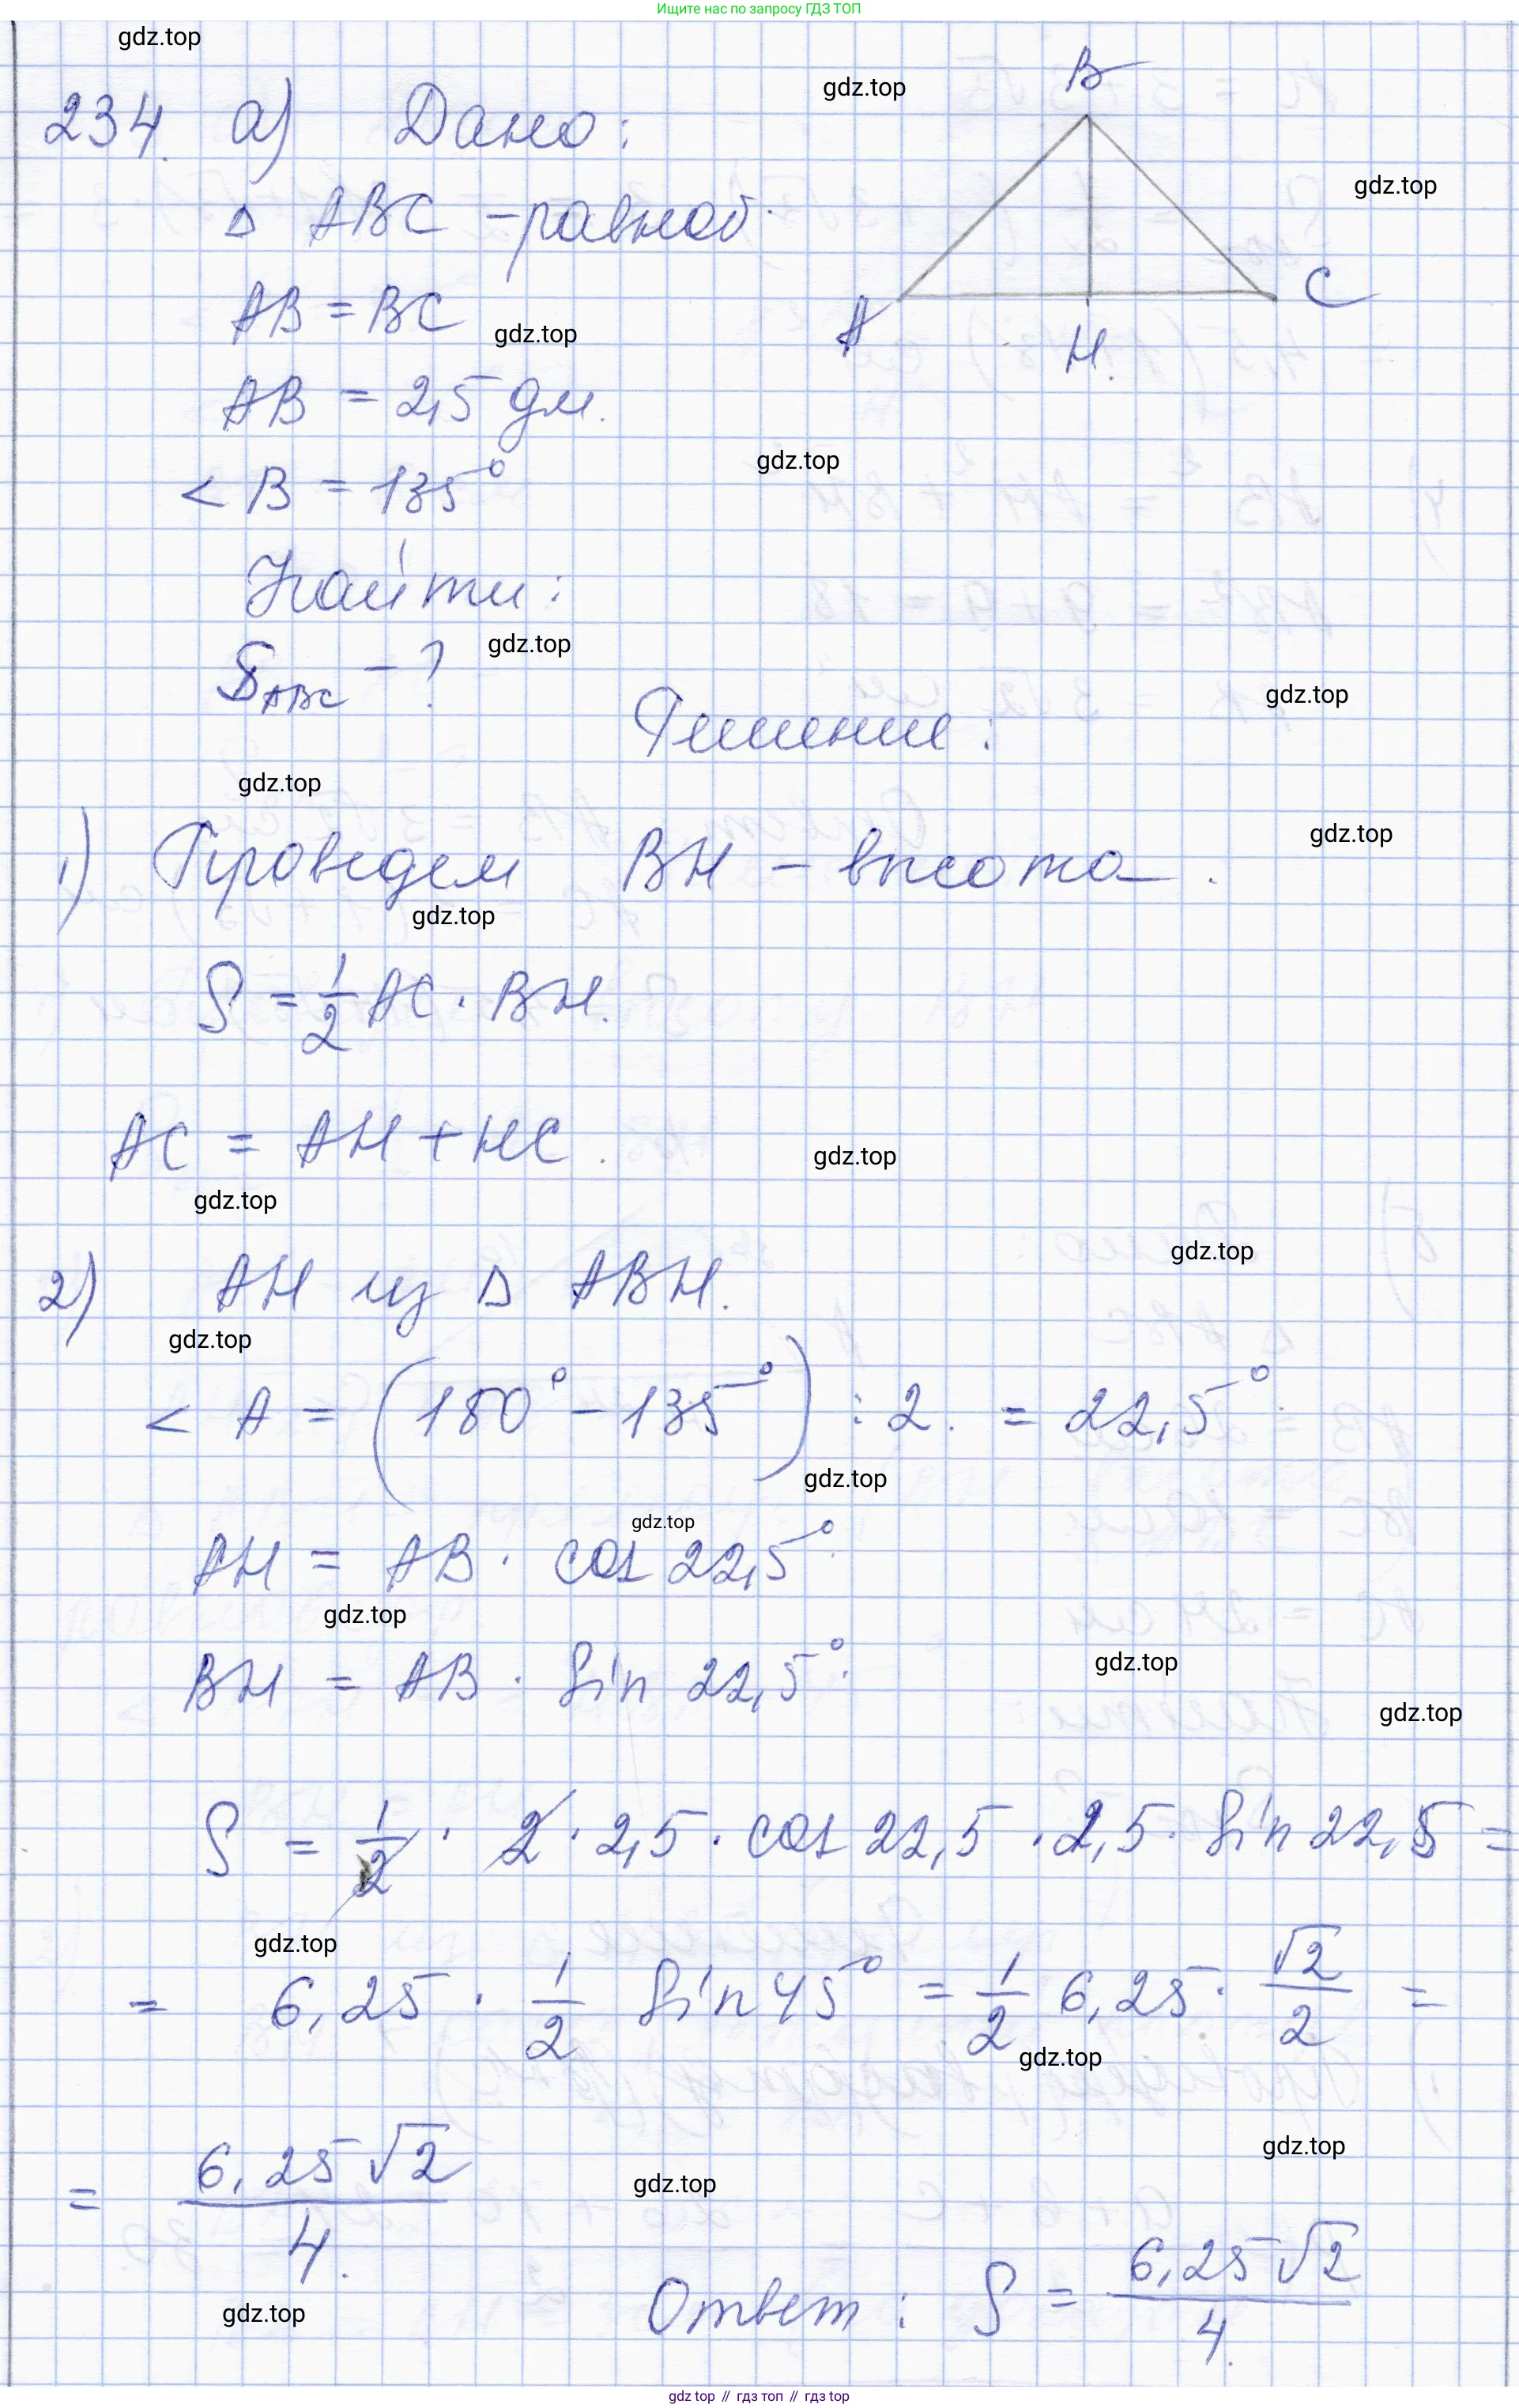 Ищите нас по запросу ГДЗ ТОП
gdz.top
234. а) Дано:
gdz.top
B
Δ ABC – равноб.
gdz.top
AB = BC
gdz.top
A
H.
C
AB = 2,5 дм.
gdz.top
< B = 135°
Найти:
gdz.top
S_ABC – ?
gdz.top
Решение:
gdz.top
gdz.top
1) Проведем BH – высота.
gdz.top
S = 1/2 AC · BH.
AC = AH + HC.
gdz.top
gdz.top
gdz.top
2) AH из Δ ABH.
gdz.top
< A = (180° – 135°) : 2. = 22,5°.
gdz.top
gdz.top
AH = AB · cos 22,5°.
gdz.top
gdz.top
BH = AB · sin 22,5°.
gdz.top
S = 1/2 · 2 · 2,5 · cos 22,5 · 2,5 · sin 22,5 =
gdz.top
= 6,25 · 1/2 sin 45° = 1/2 6,25 · √2/2 =
gdz.top
gdz.top
= 6,25 √2/4.
gdz.top
Ответ: S = 6,25 √2/4.
gdz.top
gdz top // гдз топ // gdz top